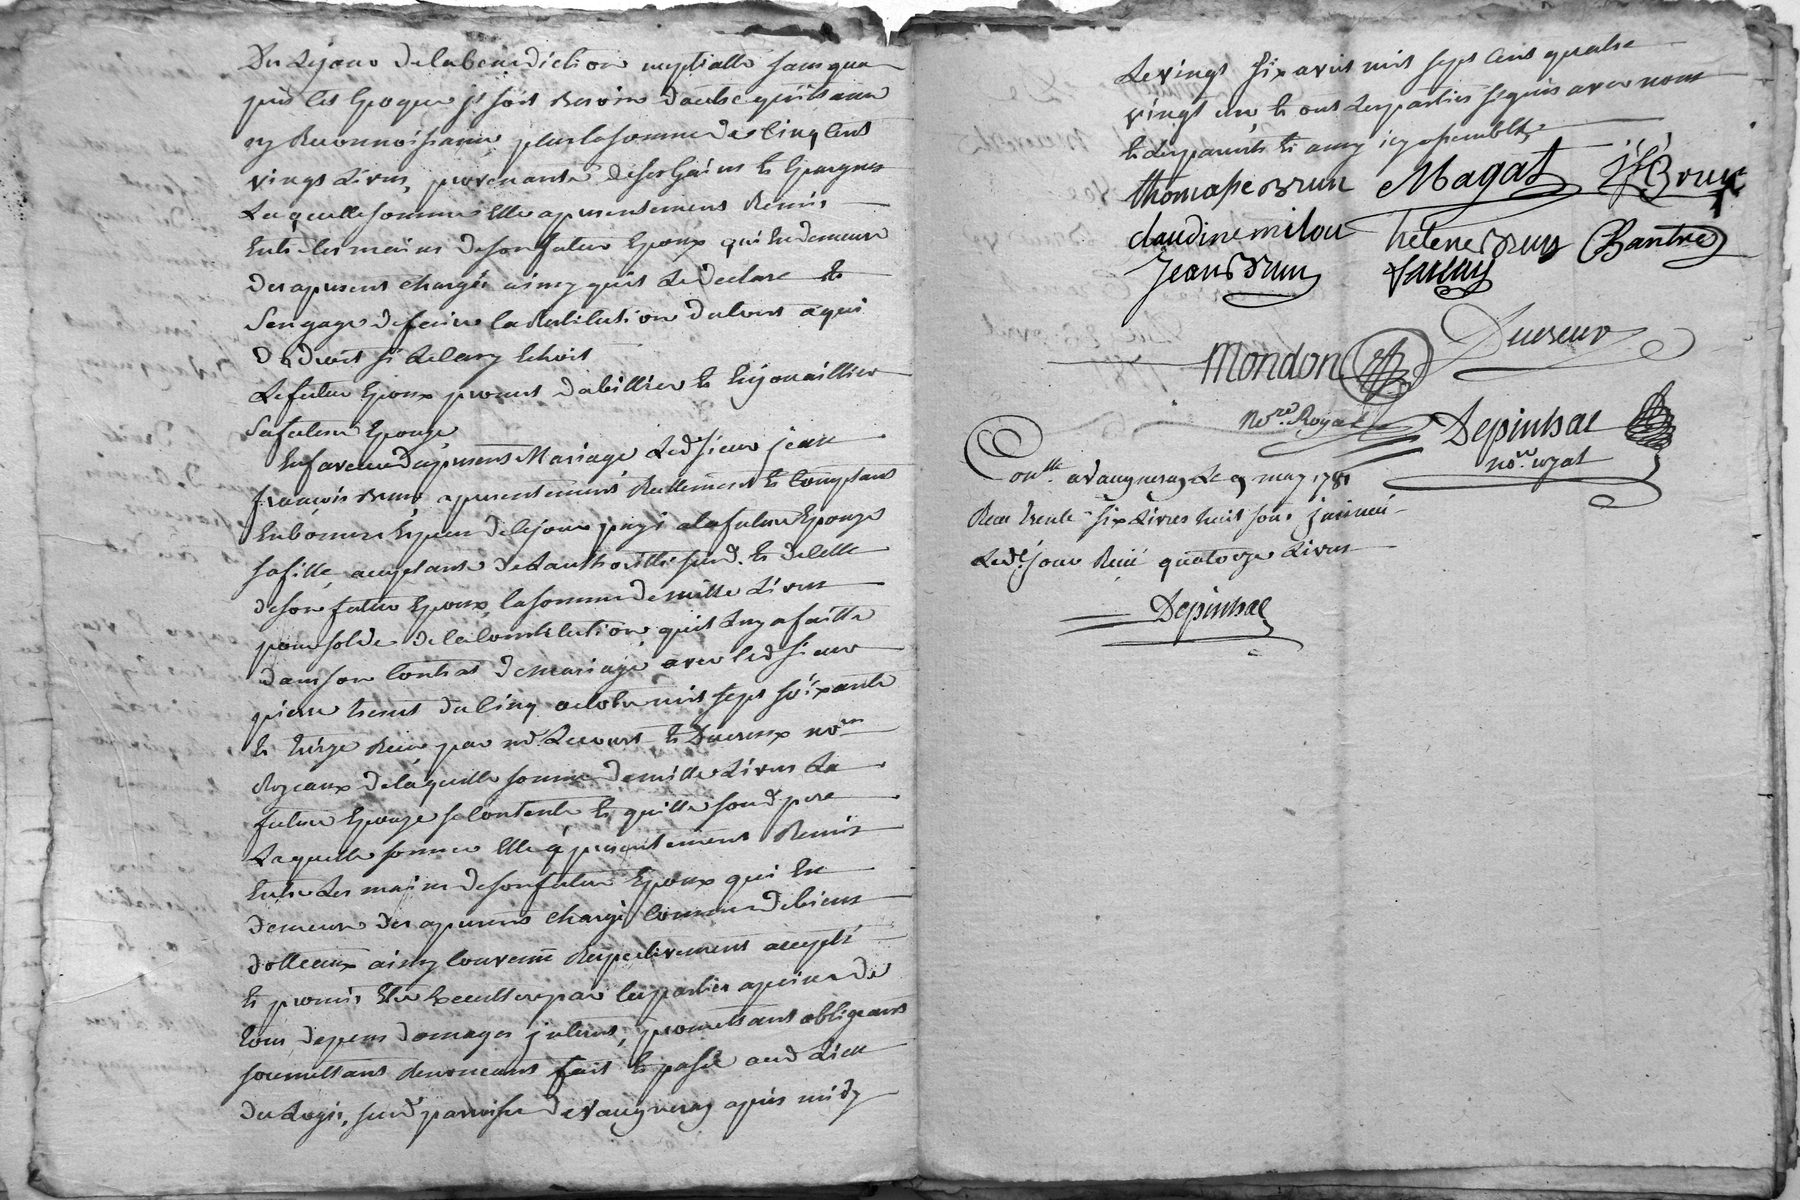 Du Lejour delabenediction nuptialle sans que
puis les Epoque jl soit Besoin dautre quittance
ny Reconnoissance plus la somme de Cinq Cent
vingt Livres, provenante de ses Gains Et Epargnes
Laquelle somme Elle apresentement Remis
Entre les mains deson futur Epoux qui En demeure
des apresent chargé ainsy quil Ledeclare Et
Sengage defaire la Restitution du tout aqui
De droit si Lecas y Echoit
Lefutur Epoux promet dabillier Et Enjouaillier
Sa future Epouze
En faveur du present Mariage Led sieur jean
françois Brun apresentement Reellement Et Comptant
En bonnes Especes delejour payé alafuture Epouze
sa fille acceptante de Lauthorité susd. Et de Celle
deson futur Epoux, la somme de mille Livres
pour solde de la Constitution quil Luy a faitte
dans son Contrat de mariage avec led sieur
pierre du Cinq octobre mil sept soixante
Et treize Reçu par me. Lecourt Et Ducreux nores
Royeaux de laquelle somme de mille Livres La
future Epouze se Contente Et quitte son d. pere
Laquelle somme Elle à presentement Remis
Entre Les mains deson futur Epoux qui En
demeure des apresent chargé Comme de biens
dotteaux ainsy Convenu Respectivement accepté
Et promis Etre Executtre par les parties apeine de
tous depens domages jnterest, promettant obligeant
soumettant Renonceant fait Et passé aud Lieu
du Logis, susd parroisse de vaugneray après midy
Le vingt six avril mil sept Cent quatre
vingt un Et ont Les parties signés avec nous
Et Les parents Et amis icy assemblés
thomasse Brun Magat J f Brun
claudine milou helene Brun Chantre
Jean Brun
Mondon Ducreux
Nore. Royal Depinhac
nore. royal
Conlle. a vaugneray Le 9 may 1781
Reçu trente six Livres huit sous
Led. jour Reçu quatorze Livres
Depinhac